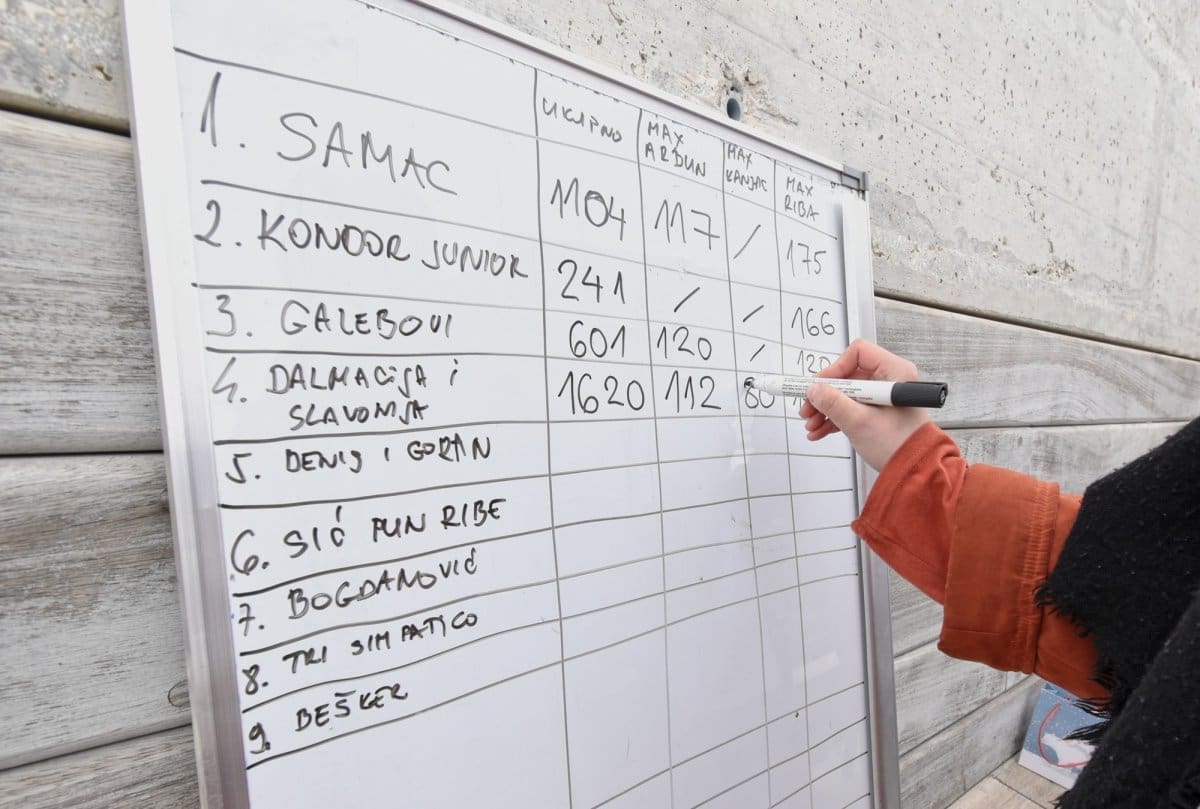 UKUPNO MAX ARBUN MAX KANJAC MAX RIBA
1. SAMAC 1104 117 / 175
2. KONDOR JUNIOR 241 / / 166
3. GALEBOVI 601 120 / 120
4. DALMACIJA i 1620 112 80
SLAVONIJA
5. DENIS I GORAN
6. SIĆ PUN RIBE
7. BOGDANOVIĆ
8. TRI SIMPATICO
9. BEŠKER